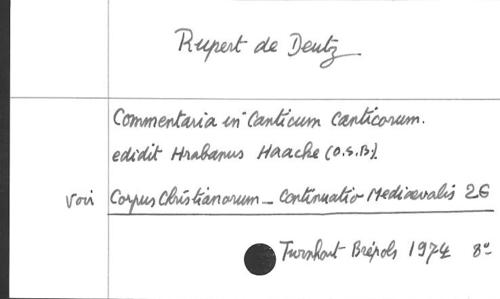 Rupert de Deutz
Commentaria in Canticum Canticorum.
edidit Hrabanus Haacke (O.S.B).
voir Corpus Christianorum - Continuatio Mediaevalis 26
Turnhout Brépols 1974 8º